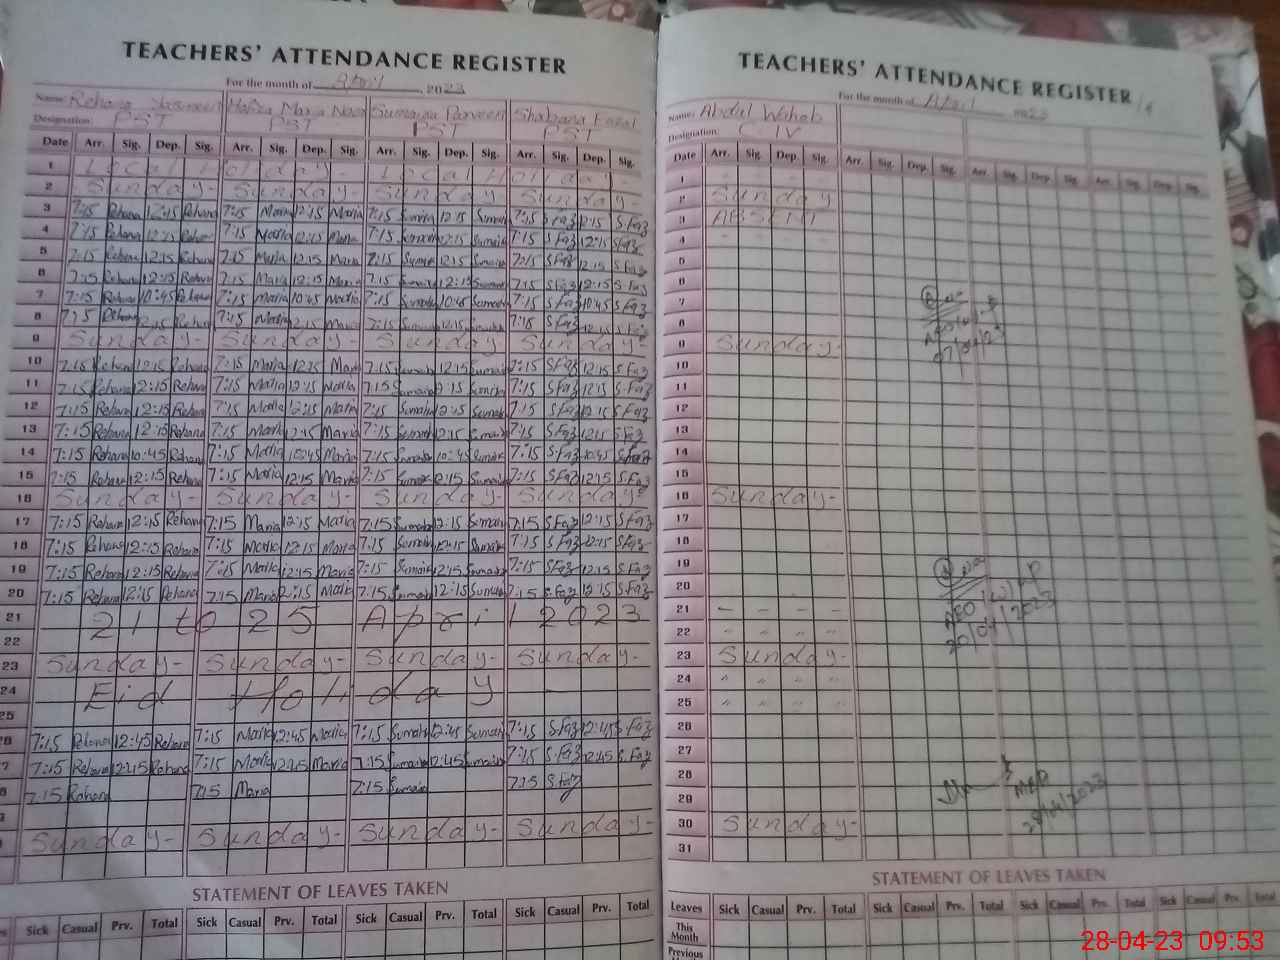 TEACHERS' ATTENDANCE REGISTER
For the month of April, 2023
Name: Rehana Jasmeen Hafiza Maria Noor Sumaira Parveen Shabana Fazal
Designation: PST PST PST PST
Date Arr. Sig. Dep. Sig. Arr. Sig. Dep. Sig. Arr. Sig. Dep. Sig. Arr. Sig. Dep. Sig.
1 Local Holiday - Local Holiday -
2 Sunday- Sunday- Sunday- Sunday-
3 7:15 Rehana 12:15 Rehana 7:15 Maria 12:15 Maria 7:15 Sumaira 12:15 Sumair 7:15 S.Faz 12:15 S.Faz
4 7:15 Rehana 12:15 Rehan 7:15 Maria 12:15 Maria 7:15 Sumaira 12:15 Sumair 7:15 S.Faz 12:15 S.Faz
5 7:15 Rehana 12:15 Rehana 7:15 Maria 12:15 Maria 7:15 Sumair 12:15 Sumair 7:15 S.Faz 12:15 S.Faz
6 7:15 Rehana 12:15 Rehana 7:15 Maria 12:15 Maria 7:15 Sumaira 12:15 Sumair 7:15 S.Faz 12:15 S.Faz
7 7:15 Rehana 10:45 Rehana 7:15 Maria 10:45 Maria 7:15 Sumaira 10:45 Sumair 7:15 S.Faz 10:45 S.Faz
8 7:15 Rehana 12:15 Rehan 7:15 Maria 12:15 Maria 7:15 Sumaira 12:15 Sumair 7:15 S.Faz 12:15 S.Faz
9 Sunday- Sunday- Sunday- Sunday-
10 7:15 Rehana 12:15 Rehana 7:15 Maria 12:15 Maria 7:15 Sumaira 12:15 Sumair 7:15 S.Faz 12:15 S.Faz
11 7:15 Rehana 12:15 Rehana 7:15 Maria 12:15 Maria 7:15 Sumaira 12:15 Sumaira 7:15 S.Faz 12:15 S.Faz
12 7:15 Rehana 12:15 Rehana 7:15 Maria 12:15 Maria 7:15 Sumaira 12:15 Sumair 7:15 S.Faz 12:15 S.Faz
13 7:15 Rehana 12:15 Rehana 7:15 Maria 12:45 Maria 7:15 Sumaira 12:15 Sumair 7:15 S.Faz 12:15 S.Faz
14 7:15 Rehana 10:45 Rehana 7:15 Maria 10:45 Maria 7:15 Sumaira 10:45 Sumair 7:15 S.Faz 10:45 S.Faz
15 7:15 Rehana 12:15 Rehana 7:15 Maria 12:15 Maria 7:15 Sumair 12:15 Sumair 7:15 S.Faz 12:15 S.Faz
16 Sunday- Sunday- Sunday- Sunday-
17 7:15 Rehana 12:15 Rehana 7:15 Maria 12:15 Maria 7:15 Sumaira 12:15 Sumair 7:15 S.Faz 12:15 S.Faz
18 7:15 Rehana 12:15 Rehana 7:15 Maria 12:15 Maria 7:15 Sumaira 12:15 Sumair 7:15 S.Faz 12:15 S.Faz
19 7:15 Rehana 12:15 Rehana 7:15 Maria 12:45 Maria 7:15 Sumaira 12:15 Sumair 7:15 S.Faz 12:15 S.Faz
20 7:15 Rehana 12:15 Rehana 7:15 Maria 12:15 Maria 7:15 Sumaira 12:15 Sumair 7:15 S.Faz 12:15 S.Faz
21 21 to 25 April 2023
22
23 Sunday- Sunday- Sunday- Sunday-
24 Eid Holiday
25
26 7:15 Rehana 12:45 Rehana 7:15 Maria 12:45 Maria 7:15 Sumaira 12:45 Sumair 7:15 S.Faz 12:45 S.Faz
7 7:15 Rehana 12:15 Rehana 7:15 Maria 12:45 Maria 7:15 Sumaira 12:45 Sumair 7:15 S.Faz 12:45 S.Faz
8 7:15 Rehana 7:15 Maria 7:15 Sumair 7:15 S.Faz
Sunday- Sunday- Sunday- Sunday-
STATEMENT OF LEAVES TAKEN
Sick Casual Prv. Total Sick Casual Prv. Total Sick Casual Prv. Total Sick Casual Prv. Total
TEACHERS' ATTENDANCE REGISTER
For the month of April 2023
Name: Abdul Wahab
Designation: C IV
Date Arr. Sig. Dep. Sig. Arr. Sig. Dep. Sig. Arr. Sig. Dep. Sig. Arr. Sig. Dep. Sig.
1
2 Sunday
3 ABSENT
4
5
6
7
8
9 Sunday-
07/04/23
10
11
12
13
14
15
16 Sunday-
17
18
19
20
21 - - - -
20/04/2023
22 " " " "
23 Sunday-
24 " " " "
25 " " " "
26
27
28
29
28/04/2023
30 Sunday-
31
STATEMENT OF LEAVES TAKEN
Leaves Sick Casual Prv. Total Sick Casual Prv. Total Sick Casual Prv. Total Sick Casual Prv. Total
This Month
Previous
28-04-23 09:53